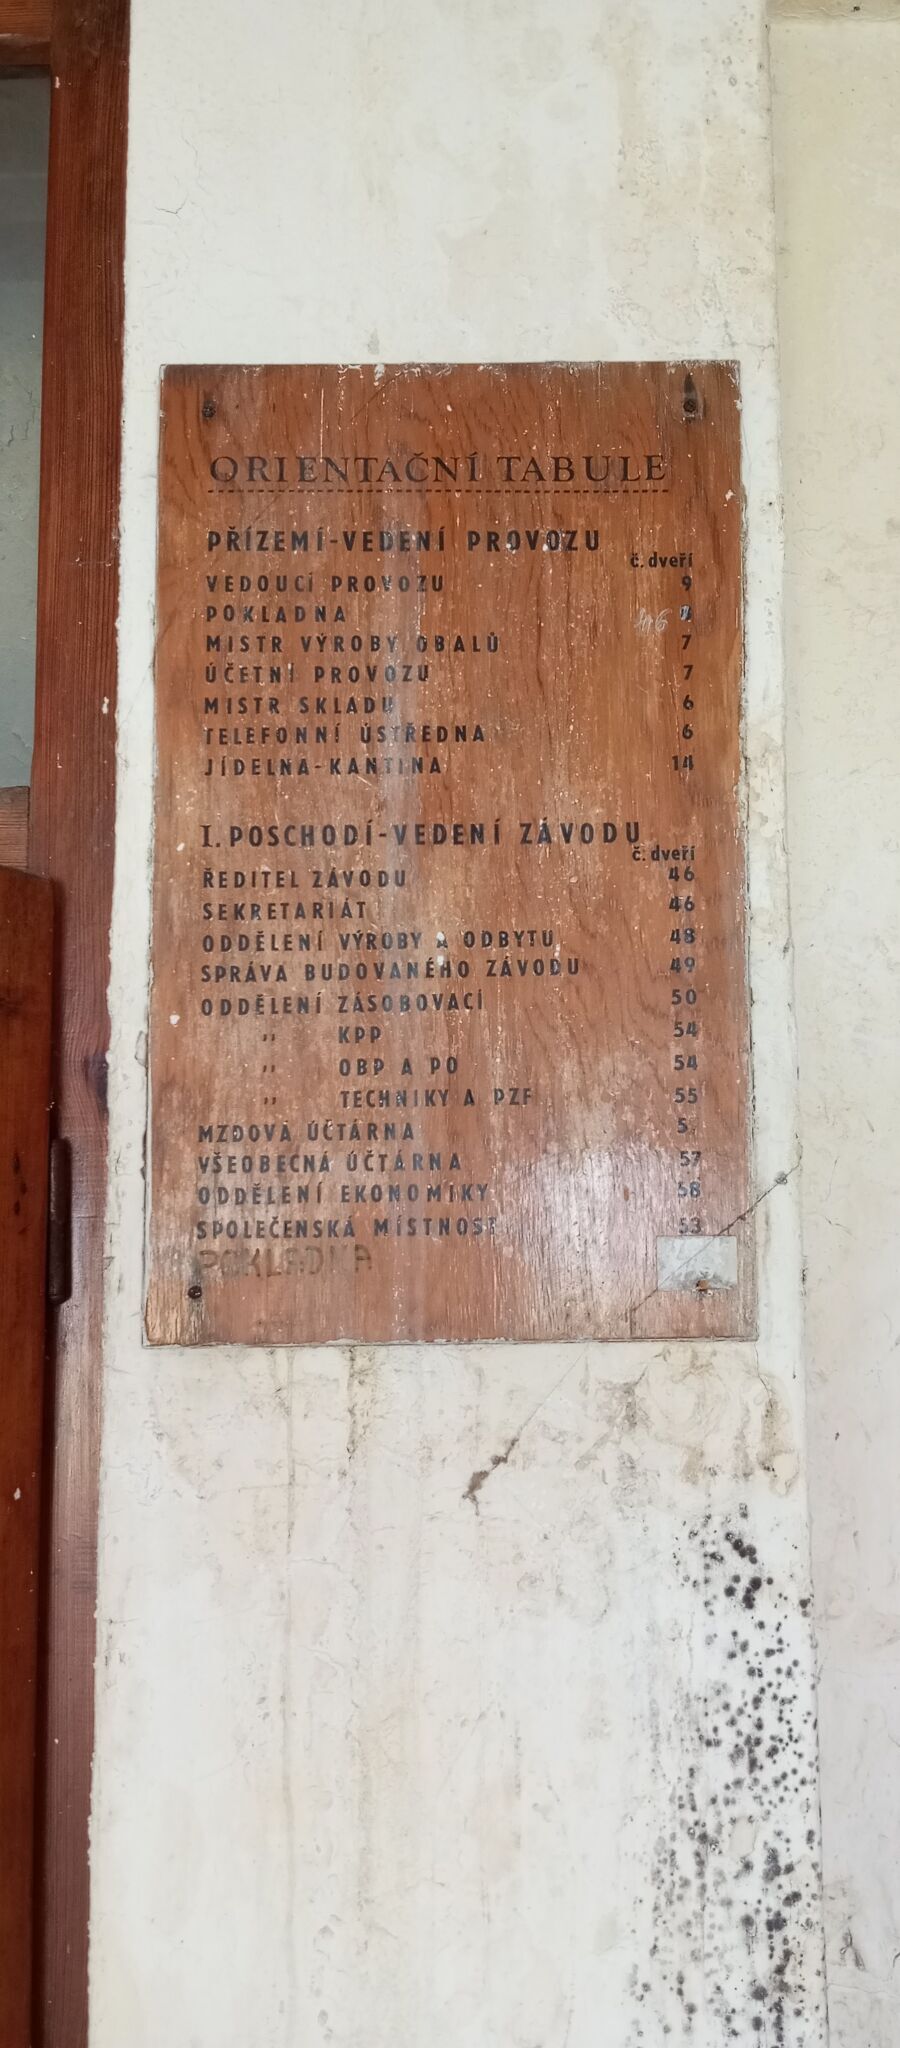 ORIENTAČNÍ TABULE
PŘÍZEMÍ-VEDENÍ PROVOZU
č. dveří
VEDOUCÍ PROVOZU 9
POKLADNA 46
MISTR VÝROBY OBALŮ 7
ÚČETNÍ PROVOZU 7
MISTR SKLADU 6
TELEFONNÍ ÚSTŘEDNA 6
JÍDELNA-KANTINA 14
I. POSCHODÍ-VEDENÍ ZÁVODU
č. dveří
ŘEDITEL ZÁVODU 46
SEKRETARIÁT 46
ODDĚLENÍ VÝROBY A ODBYTU 48
SPRÁVA BUDOVANÉHO ZÁVODU 49
ODDĚLENÍ ZÁSOBOVACÍ 50
,, KPP 54
,, OBP A PO 54
,, TECHNIKY A PZF 55
MZDOVÁ ÚČTÁRNA 5
VŠEOBECNÁ ÚČTÁRNA 57
ODDĚLENÍ EKONOMIKY 58
SPOLEČENSKÁ MÍSTNOST 53
POKLADNA